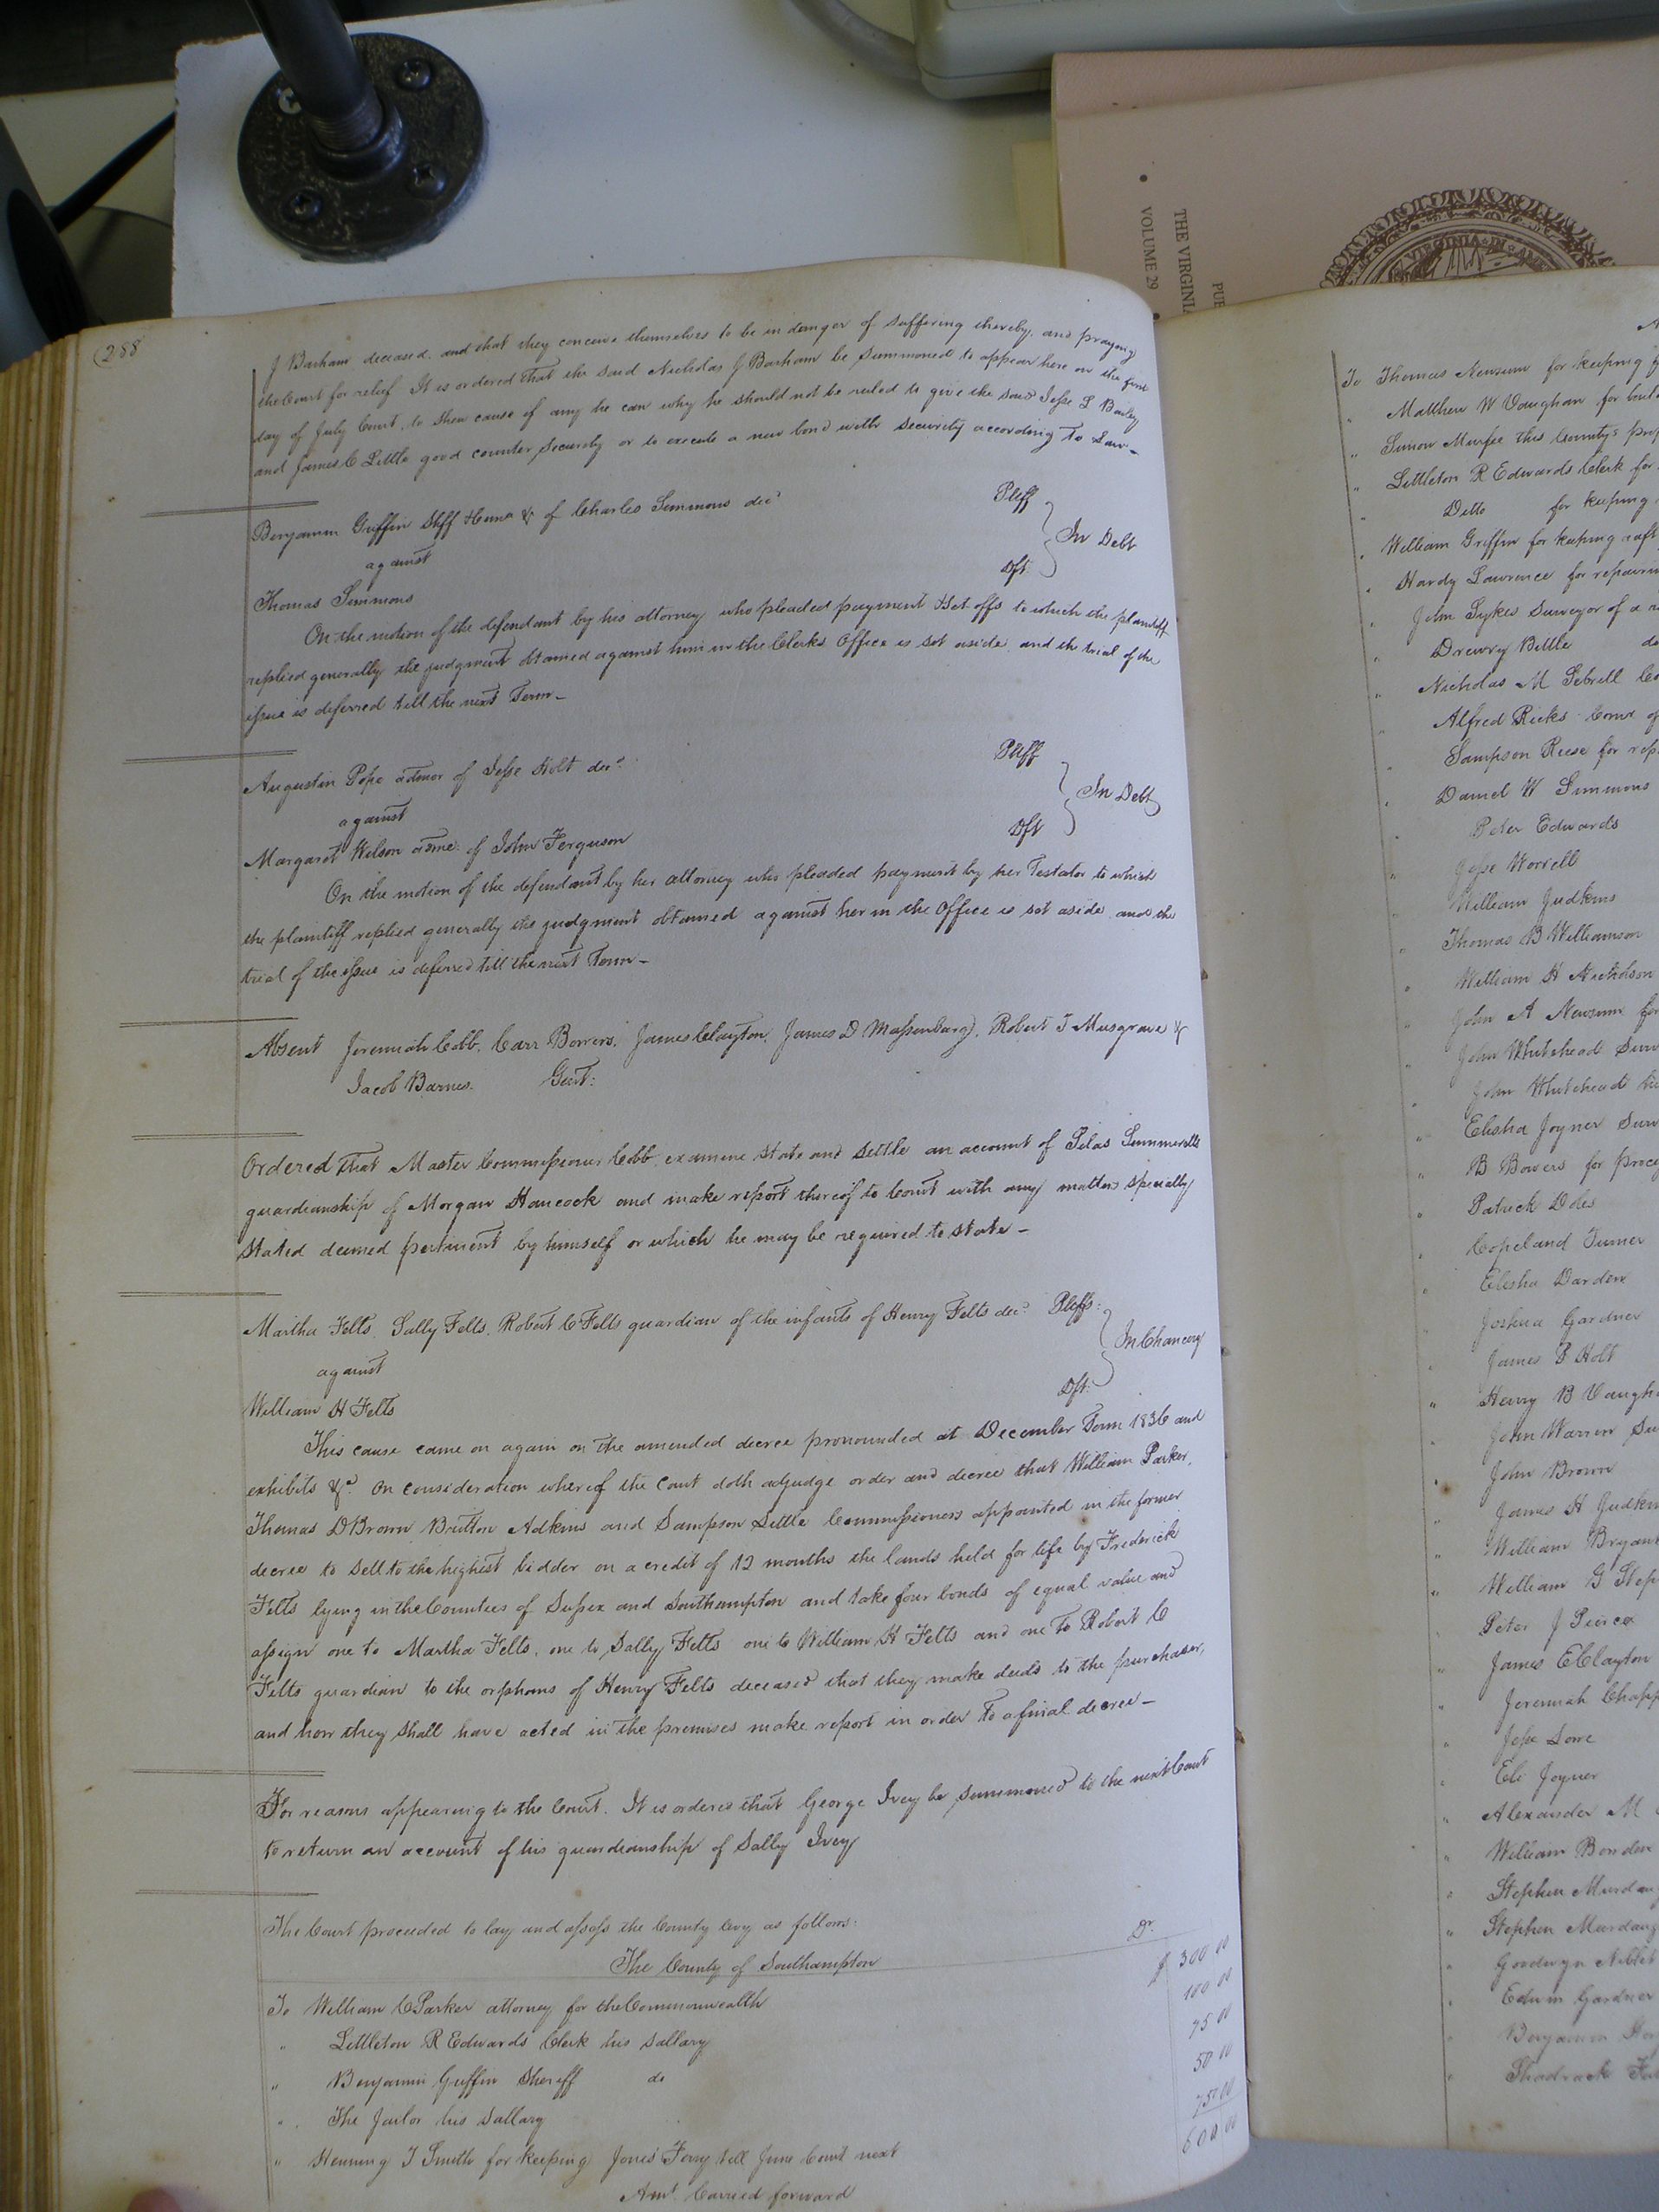 THE VIRGINIA
VOLUME 29
VIRGINIA IN
288
J Barham deceased, and that they conceive themselves to be in danger of suffering thereby, and praying
the Court for relief It is ordered that the said Nicholas J Barham be summoned to appear here on the first
day of July Court, to shew cause if any he can why he should not be ruled to give the said Jesse L Bailey
and James C Little good counter security or to execute a new bond with security according to Law–
Benjamin Griffin Shff &c of Charles Simmons decd Pltff
against In Debt
Thomas Simmons Dft
On the motion of the defendant by his attorney who pleaded payment & set offs to which the plaintiff
replied generally the judgment obtained against him in the Clerks Office is set aside, and the trial of the
issue is deferred till the next Term–
Augustin Pope admor of Jesse Holt decd Pltff
against In Debt
Margaret Wilson adme: of John Ferguson Dft
On the motion of the defendant by her attorney who pleaded payment by her Testator to which
the plaintiff replied generally the judgment obtained against her in the Office is set aside and the
trial of the issue is deferred till the next Term–
Absent Jeremiah Cobb, Carr Bowers, James Clayton, James D Massenburg, Robert T Musgrave &
Jacob Barnes. Gent:
Ordered that Master Commissioner Cobb examine state and settle an account of Silas Summerells
guardianship of Morgan Hancock and make report thereof to Court with any matters specially
stated deemed pertinent by himself or which he may be required to state–
Martha Felts, Sally Felts, Robert C Felts guardian of the infants of Henry Felts decd Pltffs:
against In Chancery
William H Felts Dft:
This cause came on again on the amended decree pronounced at December Term 1836 and
exhibits &c. On consideration whereof the Court doth adjudge order and decree that William Parker,
Thomas D Brown Britton Adkins and Sampson Little Commissioners appointed in the former
decree to sell to the highest bidder on a credit of 12 months the lands held for life by Frederick
Felts lying in the Counties of Sussex and Southampton and take four bonds of equal value and
assign one to Martha Felts, one to Sally Felts one to William H Felts and one to Robert C
Felts guardian to the orphans of Henry Felts deceased that they make deeds to the purchaser,
and how they shall have acted in the premises make report in order to a final decree–
For reasons appearing to the Court. It is ordered that George Ivey be summoned to the next Court
to return an account of his guardianship of Sally Ivey
The Court proceeded to lay and assess the County levy as follows:
The County of Southampton Dr.
To William C Parker attorney for the Commonwealth $ 300 00
" Littleton R Edwards Clerk his sallary 100 00
" Benjamin Griffin Sheriff do 75 00
" The Jailor his sallary 50 00
" Henning T Smith for keeping Jones' Ferry till June Court next 75 00
Amt. Carried forward 600 00
To Thomas Newsum for keeping
" Matthew W Vaughan for
" Simon Murfee this County's
" Littleton R Edwards Clerk for
" Ditto for keeping
" William Griffin for keeping raft
" Hardy Lawrence for
" John Sykes Surveyor of a
" Drewry Bittle
" Nicholas M Sebrell
" Alfred Ricks Comr of
" Sampson Reese for
" Daniel W Simmons
" Peter Edwards
" Jesse Worrell
" William Judkins
" Thomas B Williamson
" William H Nicholson
" John A Newsum for
" John Whitehead
" John Whitehead
" Elisha Joyner
" B Bowers for
" Patrick Doles
" Copeland Turner
" Elisha Darden
" Joshua Gardner
" James P Holt
" Henry B
" John Warren
" John Brown
" James H
" William
" William G
" Peter J Pierce
" James E Clayton
" Jeremiah
" Jesse Lowe
" Eli Joyner
" Alexander M
" William
" Stephen
" Stephen
" Goodwyn
" Edwin Gardner
" Benjamin
" Shadrack